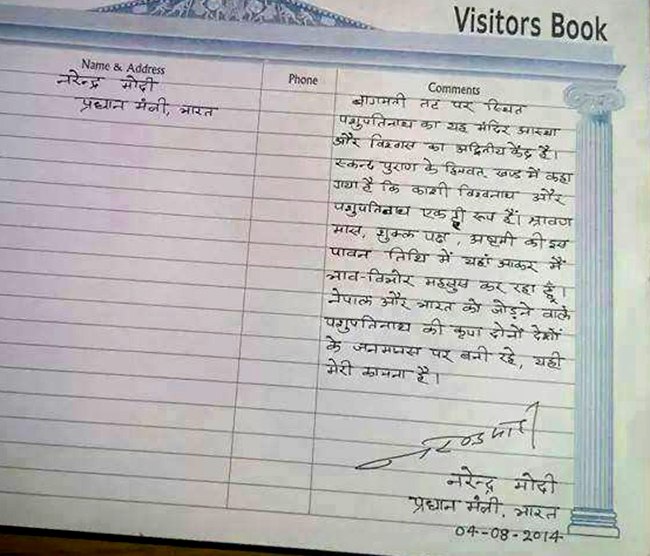 Visitors Book
Name & Address
Phone
Comments
नरेन्द्र मोदी
प्रधान मंत्री, भारत
बागमती तट पर स्थित
पशुपतिनाथ का यह मंदिर आस्था
और विश्वास का अद्वितीय केंद्र है।
स्कन्द पुराण के हिमवत खण्ड में कहा
गया है कि काशी विश्वनाथ और
पशुपतिनाथ एक ही रूप हैं। श्रावण
मास, शुक्ल पक्ष, अष्टमी की इस
पावन तिथि में यहाँ आकर मैं
भाव-विभोर महसूस कर रहा हूँ।
नेपाल और भारत को जोड़ने वाले
पशुपतिनाथ की कृपा दोनों देशों
के जनमानस पर बनी रहे, यही
मेरी कामना है।
नरेन्द्र मोदी
प्रधान मंत्री, भारत
04-08-2014